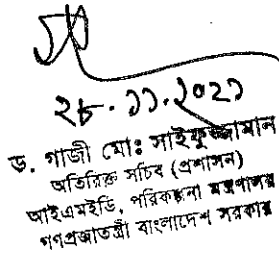 ২৮.১১.২০২১
ড. গাজী মোঃ সাইফুজ্জামান
অতিরিক্ত সচিব (প্রশাসন)
আইএমইডি, পরিকল্পনা মন্ত্রণালয়
গণপ্রজাতন্ত্রী বাংলাদেশ সরকার